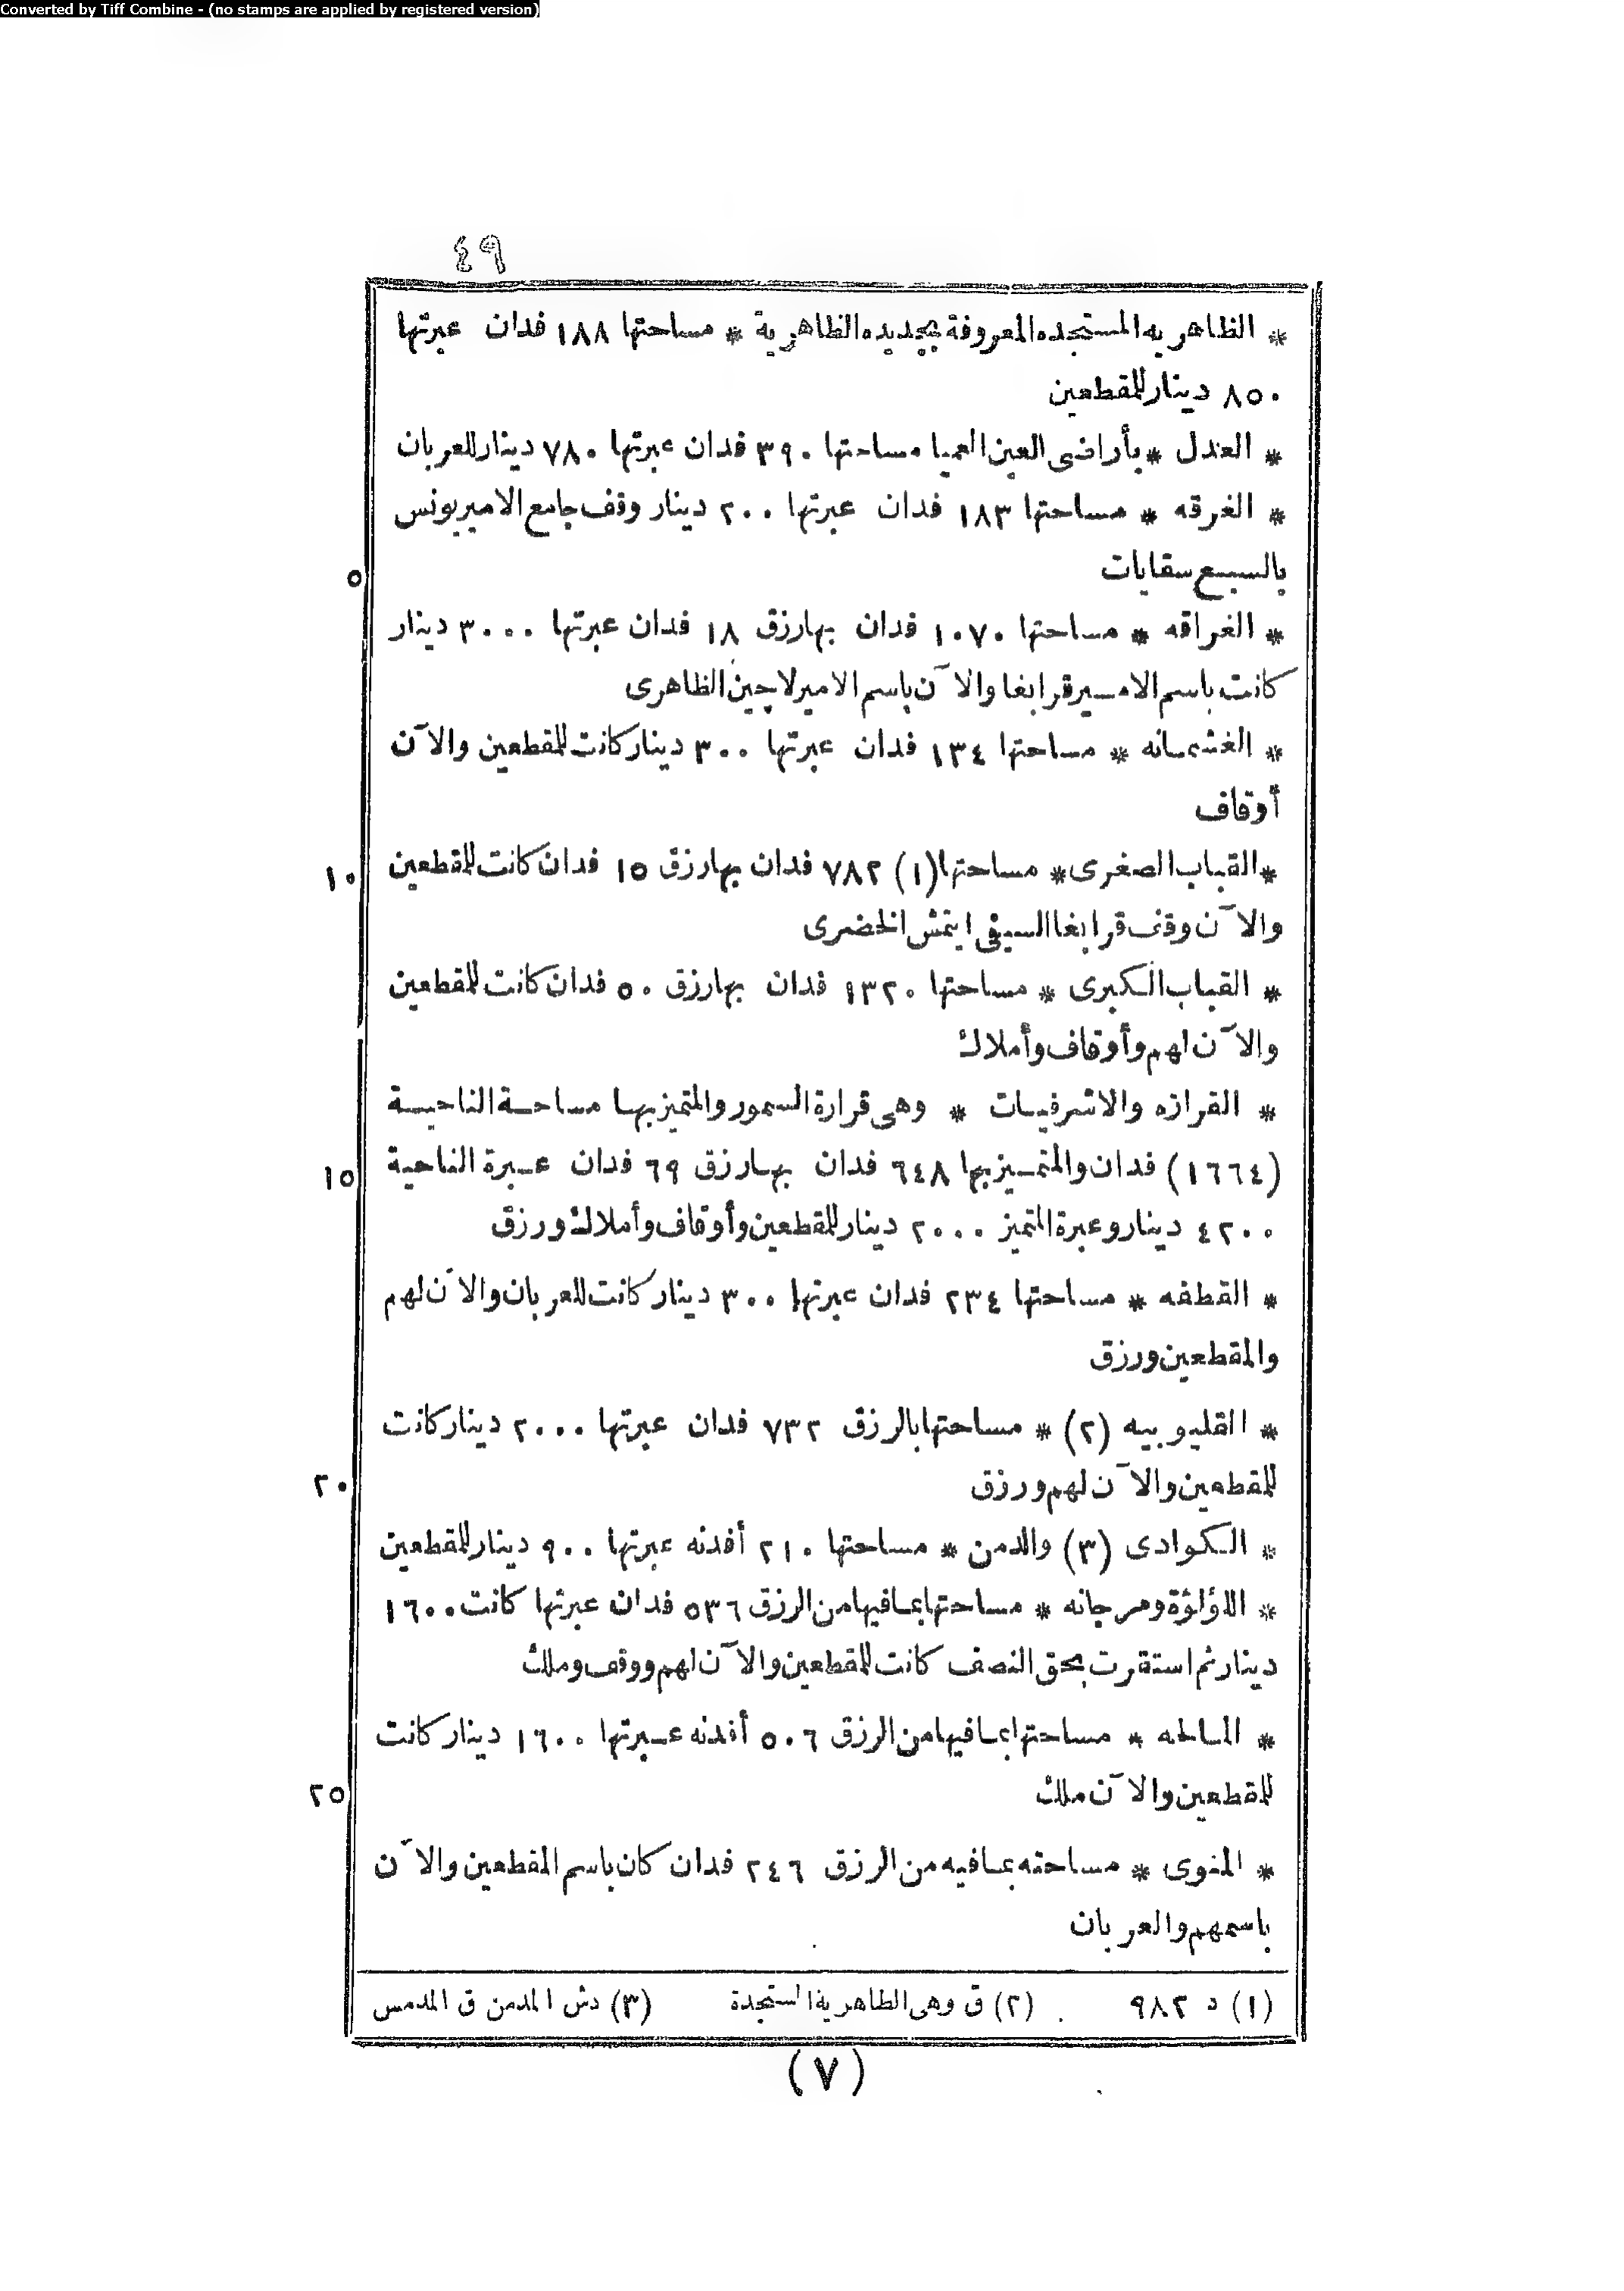 Converted by Tiff Combine - (no stamps are applied by registered version)
٤٩
* الظاهريه المستجده المعروفة بجديده الظاهرية * مساحتها ١٨٨ فدان عبرتها
٨٥٠ دينار للمقطعين
* العندل * بأراضى العين العميا مساحتها ٣٩٠ فدان عبرتها ٧٨٠ دينار للعربان
* الغرقه * مساحتها ١٨٣ فدان عبرتها ٢٠٠ دينار وقف جامع الامير يونس
٥ بالسبع سقايات
* الغراقه * مساحتها ١٠٧٠ فدان بها رزق ١٨ فدان عبرتها ٣٠٠٠ دينار
كانت باسم الامير قرابغا والآن باسم الامير لاجين الظاهرى
* الغشمانه * مساحتها ١٣٤ فدان عبرتها ٣٠٠ دينار كانت للمقطعين والآن
أوقاف
١٠ * القباب الصغرى * مساحتها (١) ٧٨٢ فدان بها رزق ١٥ فدان كانت للمقطعين
والآن وقف قرابغا السيفى ايتمش الخضرى
* القباب الكبرى * مساحتها ١٣٢٠ فدان بها رزق ٥٠ فدان كانت للمقطعين
والآن لهم وأوقاف وأملاك
* القرازه والاشرفيات * وهى قرارة السمور والمتميز بها مساحة الناحية
١٥ (١٦٦٤) فدان والمتميز بها ٦٤٨ فدان بها رزق ٦٩ فدان عبرة الناحية
٤٢٠٠ دينار وعبرة المتميز ٢٠٠٠ دينار للمقطعين وأوقاف وأملاك ورزق
* القطفه * مساحتها ٢٣٤ فدان عبرتها ٣٠٠ دينار كانت للعربان والآن لهم
والمقطعين ورزق
* القليوبيه (٢) * مساحتها بالرزق ٧٣٢ فدان عبرتها ٢٠٠٠ دينار كانت
٢٠ للمقطعين والآن لهم ورزق
* الكوادى (٣) والدمن * مساحتها ٢١٠ أفدنه عبرتها ٩٠٠ دينار للمقطعين
* اللؤلؤة ومرجانه * مساحتها بما فيها من الرزق ٥٣٦ فدان عبرتها كانت ١٦٠٠
دينار ثم استقرت بحق النصف كانت للمقطعين والآن لهم ووقف وملك
* المالحه * مساحتها بما فيها من الرزق ٥٠٦ أفدنه عبرتها ١٦٠٠ دينار كانت
٢٥ للمقطعين والآن ملك
* المنوى * مساحته بما فيه من الرزق ٢٤٦ فدان كان باسم المقطعين والآن
باسمهم والعربان
(١) د ٩٨٢ (٢) ق وهى الطاهرية المستجدة (٣) دش المدمن ق المدمس
(٧)